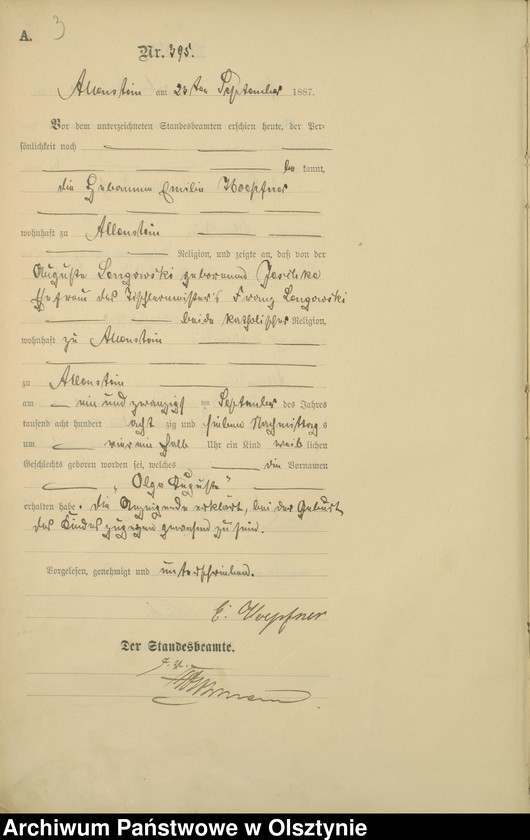 A. 3
Nr. 395.
Allenstein am 23ten September 1887.
Vor dem unterzeichneten Standesbeamten erschien heute, der Per-
sönlichkeit nach
be kannt,
die Hebamme Emilie Hoepfner
wohnhaft zu Allenstein
Religion, und zeigte an, daß von der
Auguste Longowski geborenen
Ehefrau des Tischlermeister's Franz Longowski
beide katholischer Religion,
wohnhaft zu Allenstein
zu Allenstein
am ein und zwanzigst en September des Jahres
tausend acht hundert acht zig und sieben Nachmittag s
um vier ein halb Uhr ein Kind weib lichen
Geschlechts geboren worden sei, welches die Vornamen
„Olga Auguste"
erhalten habe. Die Anzeigende erklärt, bei der Geburt
des Kindes zugegen gewesen zu sein.
Vorgelesen, genehmigt und unterschrieben.
E. Hoepfner
Der Standesbeamte.
Archiwum Państwowe w Olsztynie